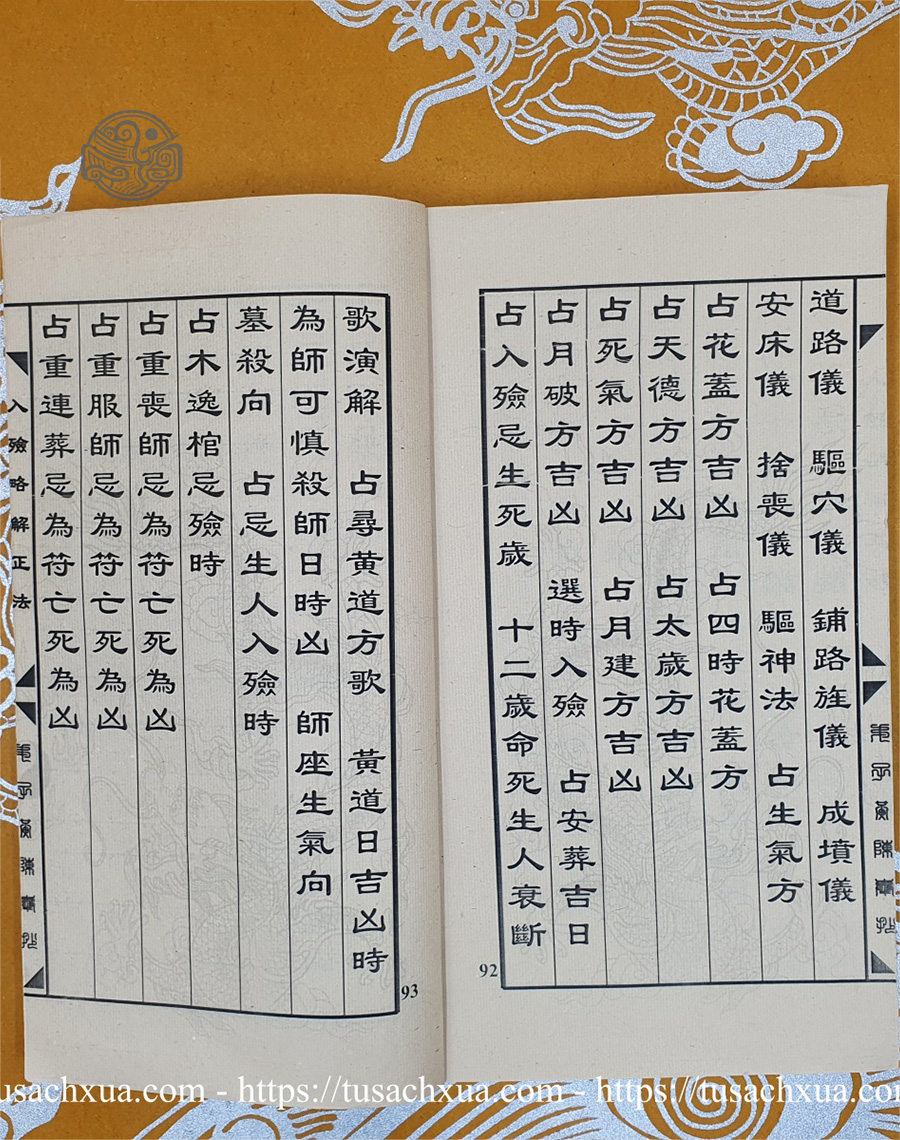 道路儀 驅穴儀 鋪路旌儀 成墳儀
安床儀 捨喪儀 驅神法 占生氣方
占花蓋方吉凶 占四時花蓋方
占天德方吉凶 占太歲方吉凶
占死氣方吉凶 占月建方吉凶
占月破方吉凶 選時入殮 占安葬吉日
占入殮忌生死歲 十二歲命死生人衰斷
92
歌演解 占尋黃道方歌 黃道日吉凶時
為師可慎殺師日時凶 師座生氣向
墓殺向 占忌生人入殮時
占木逸棺忌殮時
占重喪師忌為符亡死為凶
占重服師忌為符亡死為凶
占重連葬忌為符亡死為凶
入殮略解正法
93
tusachxua.com - https://tusachxua.com - https://tusachxua.com